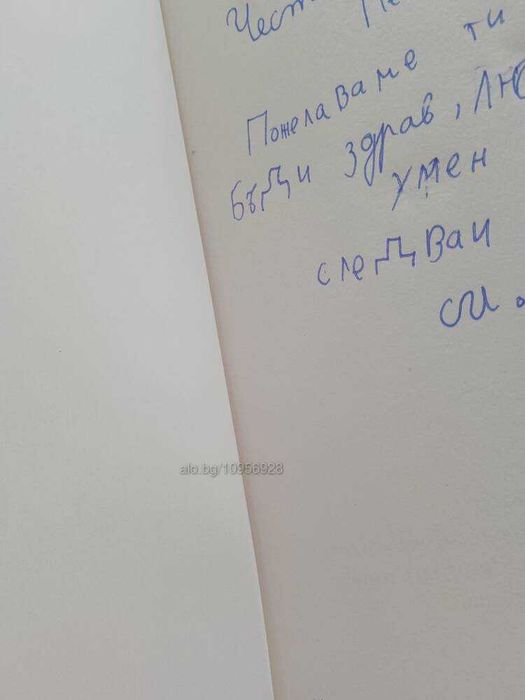 Пожелаваме ти
бъди здрав, лю
умен
следвай
си.
alo.bg/10956928